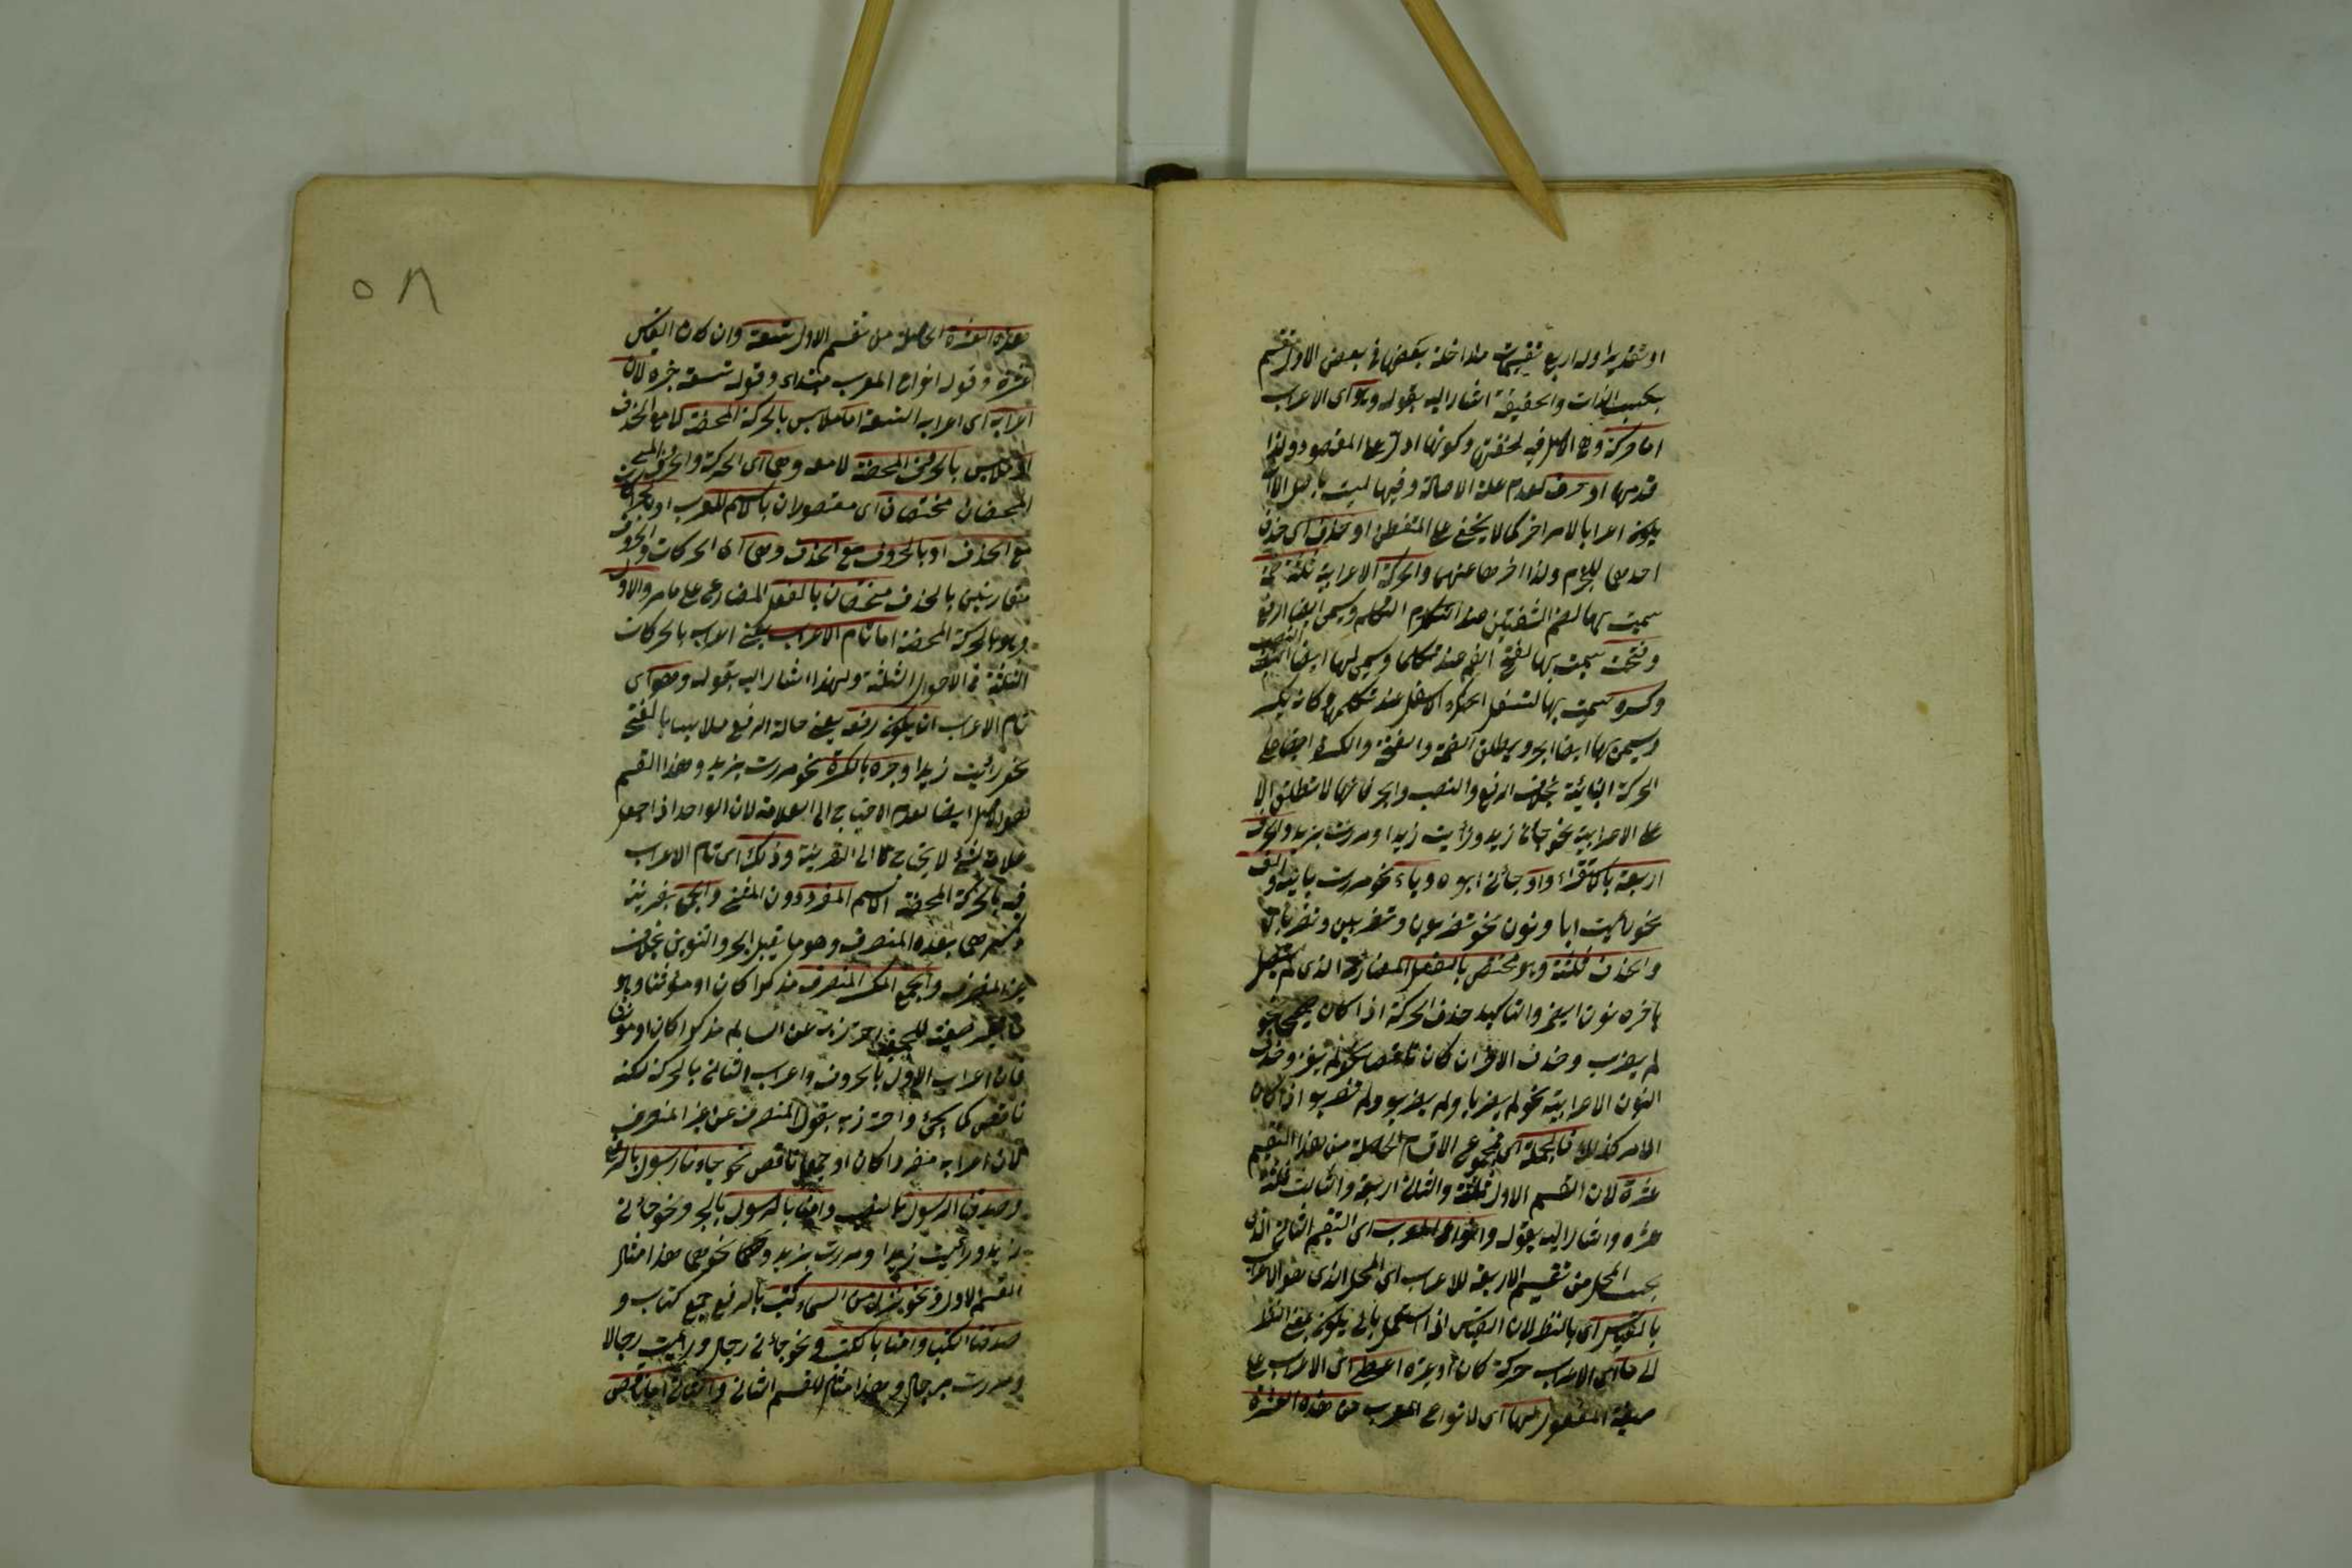 او تقديرا وله اربع تقسيمات متداخلة بعضها في بعض الاول تقسيم
بحسب الذات والحقيقة اشار اليه بقوله وهو اى الاعراب
اما حركة وهى الاصل فيه لخفتها وكونها ادل على المقصود ولذا
قدمها او حرف لعدم علة الاصالة وفيها ليست
يكون اعرابا لامر اخر كما لا يخفى على المتفطن او حذف اى حذف
احديهما للجزم ولذا اخرها عنهما والحركة الاعرابية ثلثة ضمة
سميت بها لضم الشفتين عند التكلم ويسمى ايضا الرفع
وفتحة سميت بها لفتح الفم عند تكلمها ويسمى بها ايضا النصب
وكسرة سميت بها لتسفل الحنك الاسفل عند تكلمها وكانه يكسر
ويسمى بها ايضا الجر ويطلق الضمة والفتحة والكسرة ايضا على
الحركة البنائية بخلاف الرفع والنصب والجر فانها لا تطلق الا
على الاعرابية نحو جائنى زيد ورأيت زيدا ومررت بزيد والحرف
اربعة بالاستقراء واو جائنى ابوه وياء نحو مررت بابيه والف
نحو رأيت اباه ونون نحو تضربون وتضربين وتضربان
والحذف ثلثة وهو مختص بالفعل المضارع الذى لم يتصل
باخره نون الضمير والتاكيد حذف الحركة اذا كان صحيحا نحو
لم يضرب وحذف الاخر ان كان ناقصا نحو لم يغز وحذف
النون الاعرابية نحو لم يضربا ولم يضربوا ولم تضربوا اذا كان
الامر كذلك فالجملة اى مجموع الاقسام الحاصلة من هذا التقسيم
عشرة لان القسم الاول ثلثة والثانى اربعة والثالث ثلثة
عشرة واشار اليه بقوله وانواع المعرب اى التقسيم الثانى الذى
بحسب المحل من تقسيم الاربعة للاعراب اى المحل الذى هو الاعراب
بالقياس اى بالنظر لان القياس اذا استعمل بالى يكون بمعنى النظر
الى ما اى الاعراب حركة كان او غيره اعطى اى الاعراب على
صيغة المفعول لها اى لانواع المعرب من هذه العشرة
٥٨
هذه العشرة الحاصلة من تقسيم الاول تسعة وان كان القياس
عشرة وقوله انواع المعرب مبتداء وقوله تسعة خبره لان
اعرابه اى اعراب التسعة اما ملابس بالحركة المحضة كا مع الحذف
او ملابس بالحرف المحضة لا معه وهى اى الحركة والحرف
المحضان مختصان اى مقصوران بالاسم المعرب او بالحركة
مع الحذف او بالحروف مع الحذف وهى اى الحركات والحروف
متقارنين بالحذف مختصان بالفعل المضارع على ما مر والاول
وهو بالحركة المحضة اما تام الاعراب يعنى اعراب بالحركات
الثلثة في الاحوال الثلثة ولهذا اشار اليه بقوله وهو اى
تام الاعراب ان يكون رفعه يعنى حالة الرفع ملابسا بالفتح
نحو رأيت زيدا وجره بالكسرة نحو مررت بزيد وهذا القسم
هو الاصل ايضا لعدم الاحتياج الى العلامة لان الواحد اذا جعل
علامة لشئ لا يحتاج الى القرينة وذلك اى تام الاعراب
فيه بالحركة المحضة الاسم المفرد دون المثنى والجمع بقرينة
وهذه المنصرف وهو ما يقبل الجر والتنوين بخلاف
غير المنصرف والجمع المكسر المنصرف مذكرا كان او مؤنثا وهو
صيغة للجمع احترز به عن السالم مذكرا كان او مؤنثا
فان اعراب الاول بالحروف واعراب الثانى بالحركة لكنه
ناقص كما يجئ واحترز به بقوله المنصرف عن غير المنصرف
لان اعرابه مفردا كان او جمعا ناقص نحو جاءنا رسول بالرفع
وصدقنا الرسول بالنصب وامنا بالرسول بالجر ونحو جائنى
زيد ورأيت زيدا ومررت بزيد وهذا مثال
القسم الاول ونحو نزل من السماء كتب بالرفع جمع كتاب و
صدقنا الكتب وامنا بالكتب ونحو جائنى رجال ورأيت رجالا
ومررت برجال وهذا مثال للقسم الثانى والثانى اما ناقص